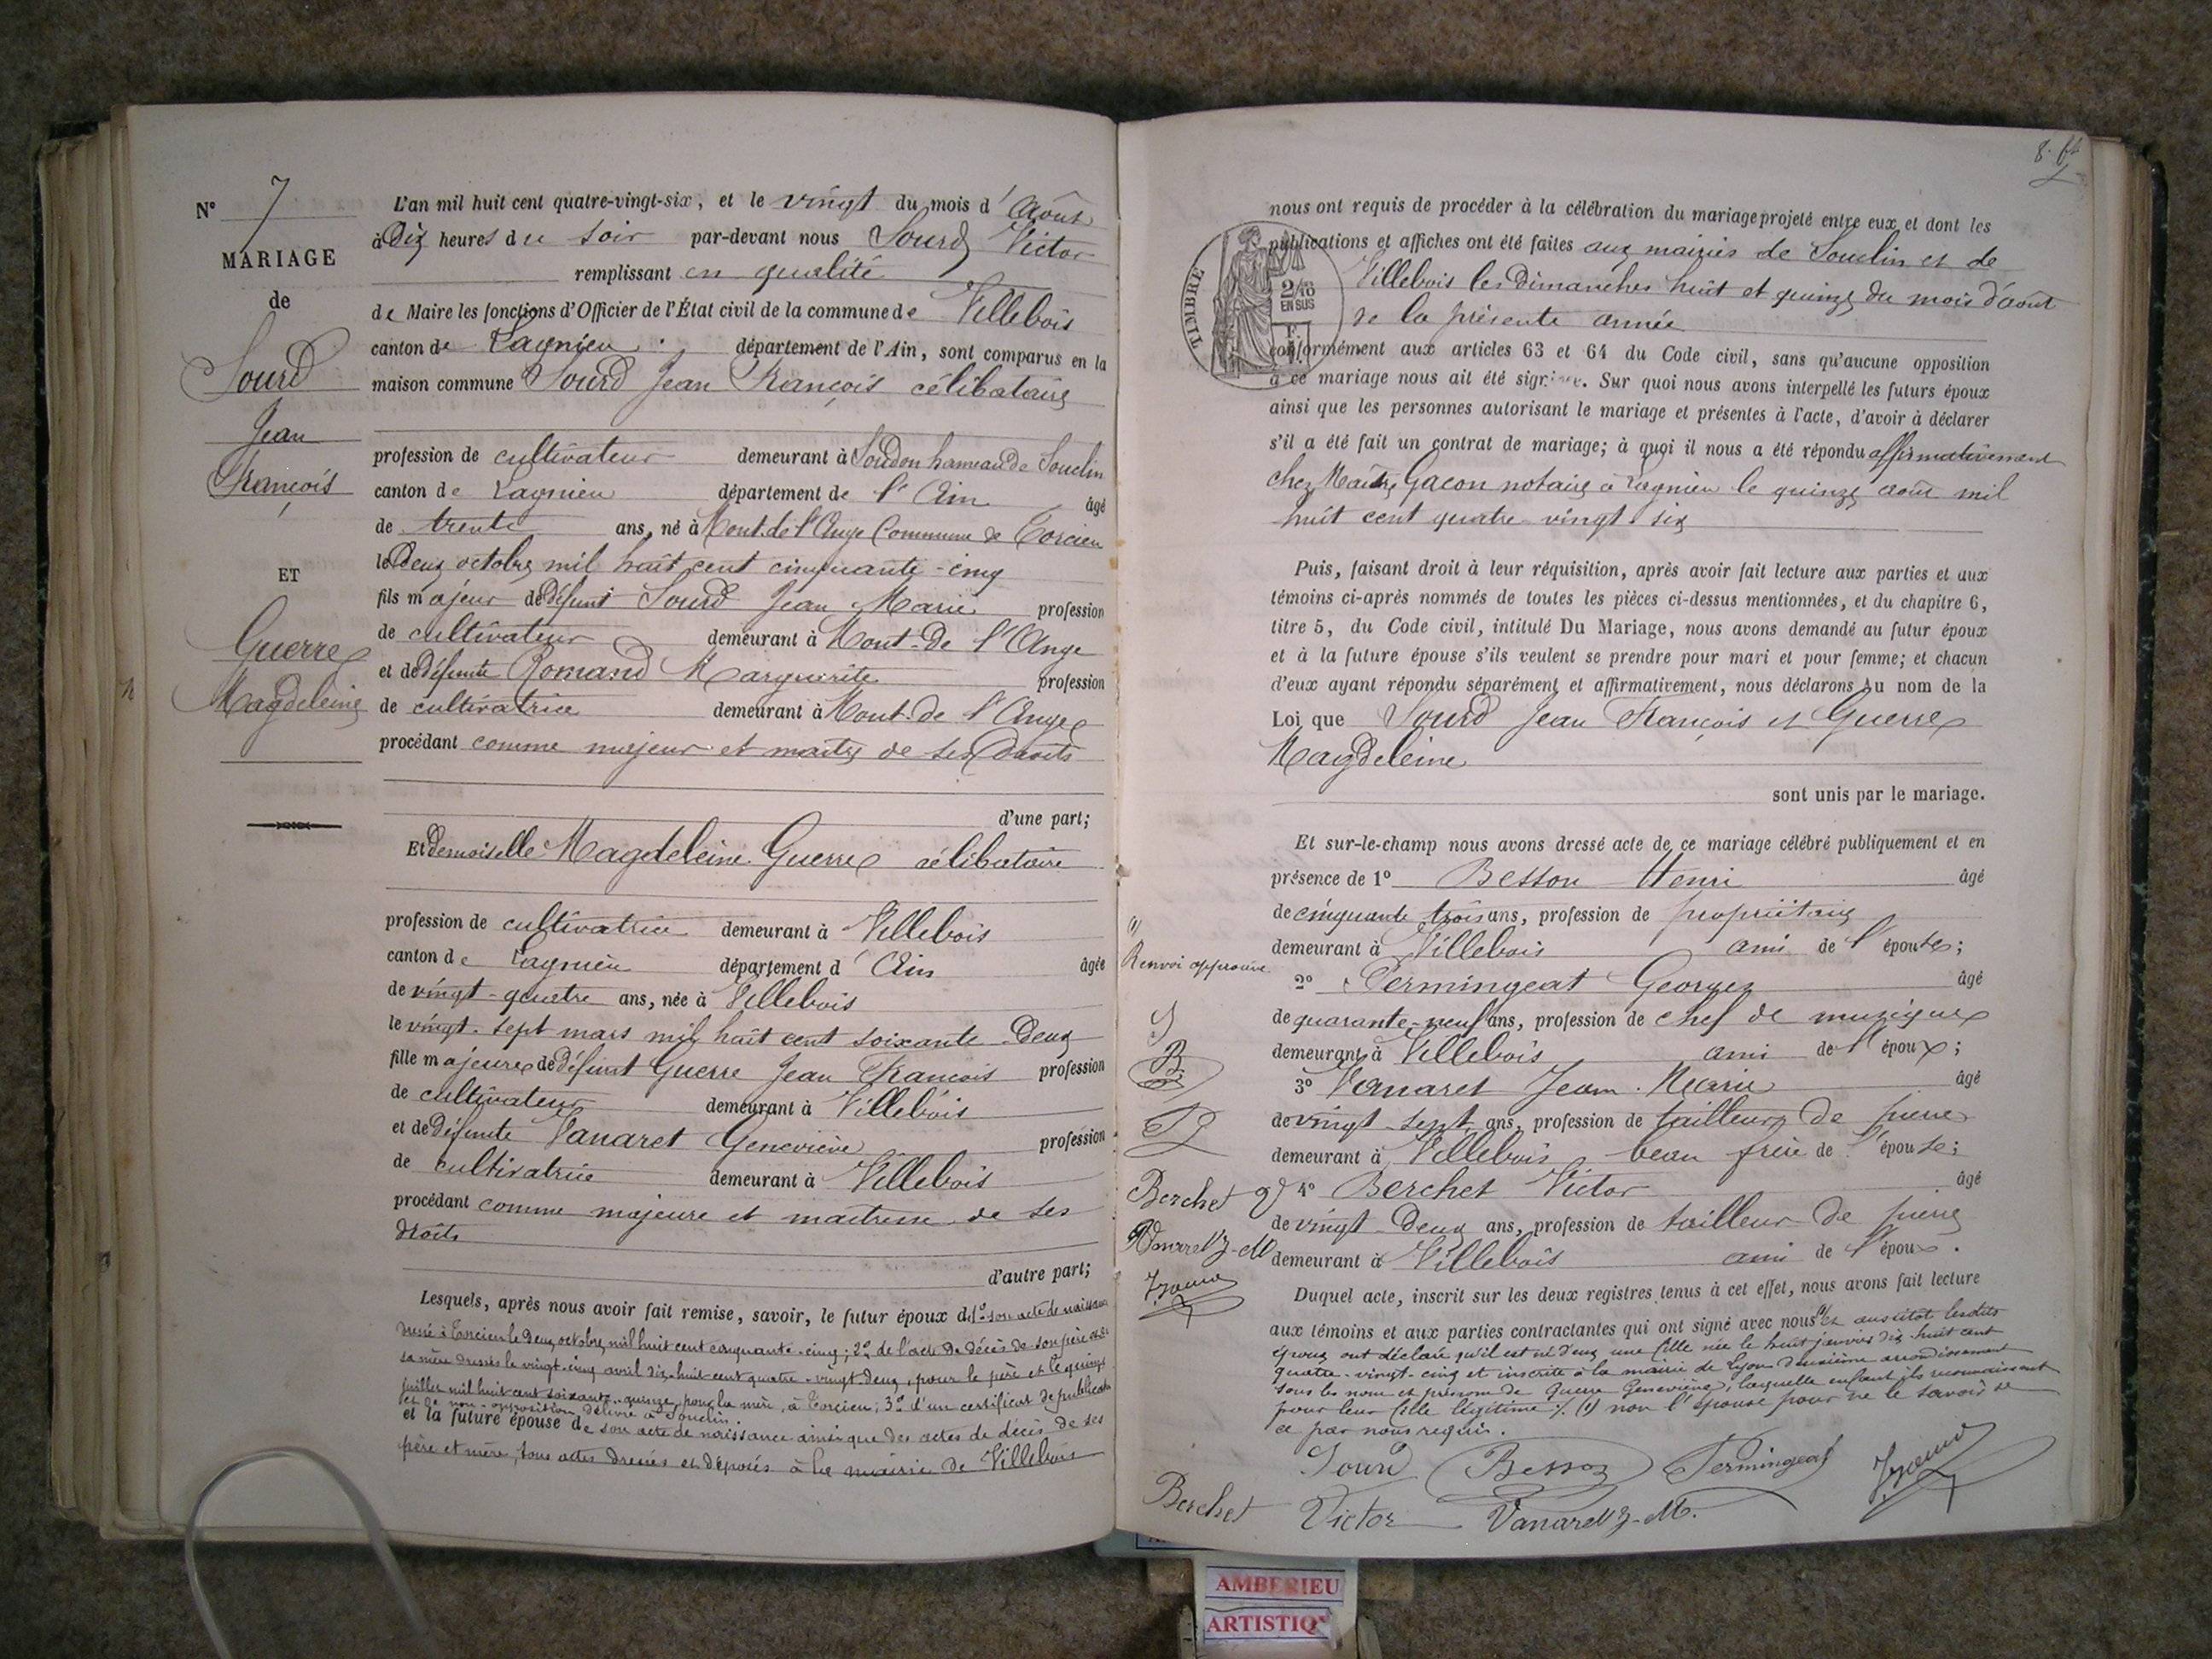 N° 7
MARIAGE
de
Sourd
Jean
François
ET
Guerre
Magdeleine
L'an mil huit cent quatre-vingt-six, et le vingt du mois d'Août
à Dix heures du soir par-devant nous Sourd Victor
remplissant en qualité
de Maire les fonctions d'Officier de l'État civil de la commune de Villebois
canton de Lagnieu département de l'Ain, sont comparus en la
maison commune Sourd Jean François célibataire
profession de cultivateur demeurant à Soudon hameau de Souclin
canton de Lagnieu département de l'Ain âgé
de trente ans, né à Mont-de l'Ange Commune de Torcieu
le Deux octobre mil huit cent cinquante-cinq
fils majeur de défunt Sourd Jean Marie profession
de cultivateur demeurant à Mont-de l'Ange
et de défunte Romand Marguerite profession
de cultivatrice demeurant à Mont-de l'Ange
procédant comme majeur et maître de ses Droits
d'une part;
Et Demoiselle Magdeleine Guerre célibataire
profession de cultivatrice demeurant à Villebois
canton de Lagnieu département d'Ain âgée
de vingt-quatre ans, née à Villebois
le vingt-sept mars mil huit cent soixante-Deux
fille majeure de défunt Guerre Jean François profession
de cultivateur demeurant à Villebois
et de défunte Vanaret Geneviève profession
de cultivatrice demeurant à Villebois
procédant comme majeure et maitresse de ses
droits
d'autre part;
Lesquels, après nous avoir fait remise, savoir, le futur époux de 1° son acte de naissance
dressé à Torcieu le deux octobre mil huit cent cinquante-cinq; 2° de l'acte de décès de son père et de
sa mère dressés le vingt-cinq avril dix-huit cent quatre-vingt deux, pour le père et le quinze
juillet mil huit cent soixante-quinze, pour la mère, à Torcieu; 3° d'un certificat de publication
et de non-opposition délivré à Souclin.
et la future épouse de son acte de naissance ainsi que des actes de décès de ses
père et mère, tous actes dressés et déposés à la mairie de Villebois
8.
TIMBRE
2/10
EN SUS
nous ont requis de procéder à la célébration du mariage projeté entre eux et dont les
publications et affiches ont été faites aux mairies de Souclin et de
Villebois les Dimanches huit et quinze du mois d'août
de la présente année
conformément aux articles 63 et 64 du Code civil, sans qu'aucune opposition
à ce mariage nous ait été signifiée. Sur quoi nous avons interpellé les futurs époux
ainsi que les personnes autorisant le mariage et présentes à l'acte, d'avoir à déclarer
s'il a été fait un contrat de mariage; à quoi il nous a été répondu affirmativement
chez Maître Gacon notaire à Lagnieu le quinze août mil
huit cent quatre-vingt-six
Puis, faisant droit à leur réquisition, après avoir fait lecture aux parties et aux
témoins ci-après nommés de toutes les pièces ci-dessus mentionnées, et du chapitre 6,
titre 5, du Code civil, intitulé Du Mariage, nous avons demandé au futur époux
et à la future épouse s'ils veulent se prendre pour mari et pour femme; et chacun
d'eux ayant répondu séparément et affirmativement, nous déclarons Au nom de la
Loi que Sourd Jean François et Guerre
Magdeleine
sont unis par le mariage.
Et sur-le-champ nous avons dressé acte de ce mariage célébré publiquement et en
présence de 1° Besson Henri âgé
de cinquante trois ans, profession de propriétaire
demeurant à Villebois ami de l'épouse;
2° Permingeat Georges âgé
de quarante-neuf ans, profession de chef de musique
demeurant à Villebois ami de l'époux;
3° Vanaret Jean-Marie âgé
de vingt-sept ans, profession de tailleur de pierre
demeurant à Villebois beau frère de l'épouse;
4° Berchet Victor âgé
de vingt-Deux ans, profession de tailleur de pierre
demeurant à Villebois ami de l'époux.
Duquel acte, inscrit sur les deux registres tenus à cet effet, nous avons fait lecture
aux témoins et aux parties contractantes qui ont signé avec nous (1) et aussitôt lesdits
époux ont déclaré qu'il est né d'eux une fille née le huit janvier dix-huit cent
quatre-vingt-cinq et inscrite à la mairie de Lyon deuxième arrondissement
sous les nom et prénom de Guerre Geneviève, laquelle enfant ils reconnaissent
pour leur fille légitime ./. (1) non l'épouse pour ne le savoir de
ce par nous requis.
(1)
Renvoi approuvé
S
B
P
Berchet V
Vanaret J-M
Sourd Besson Permingeat
Berchet Victor Vanaret J-M.
AMBERIEU
ARTISTIQ